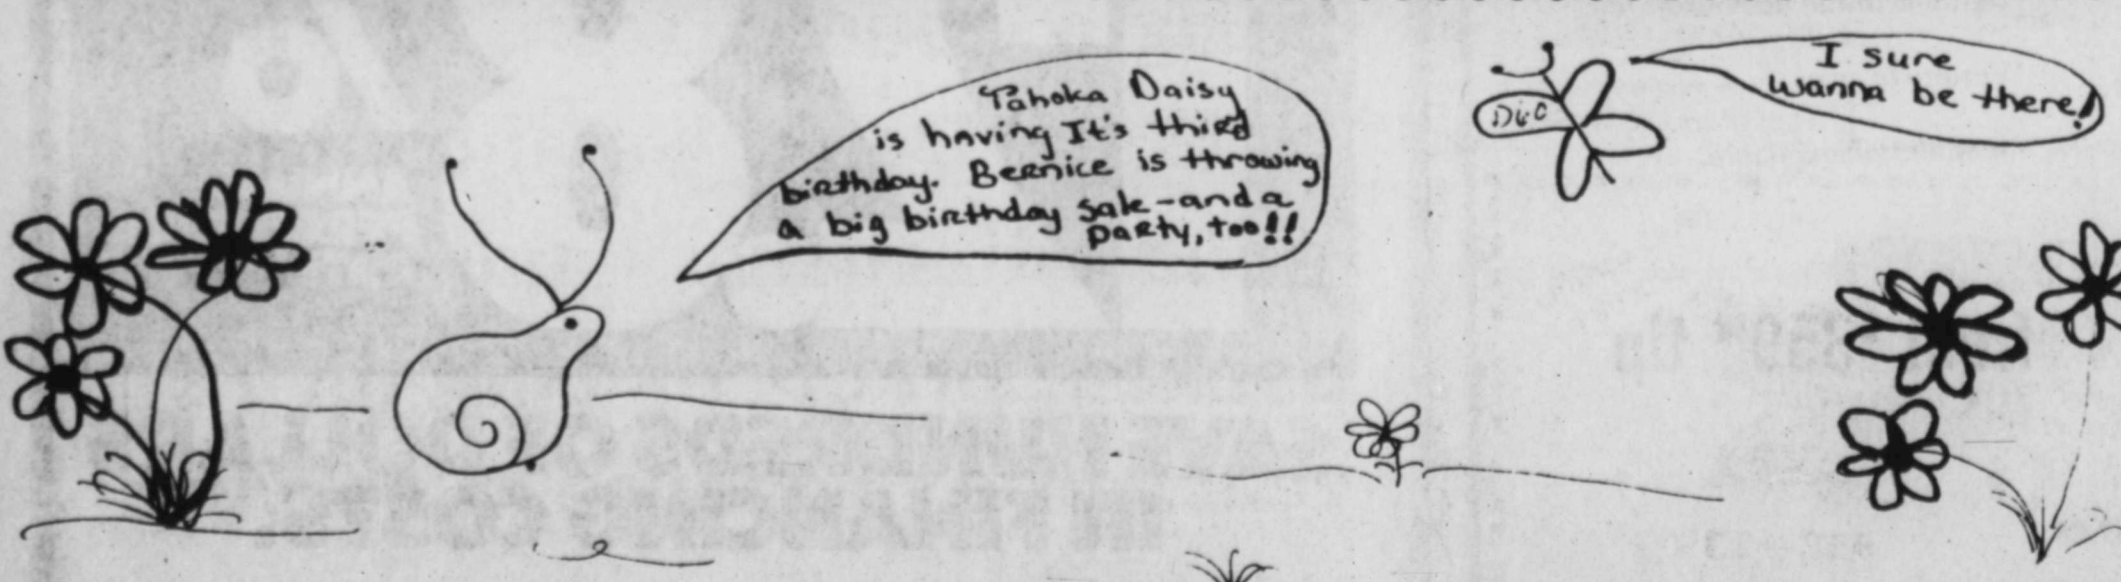 Tahoka Daisy
is having It's third
birthday. Bernice is throwing
a big birthday sale-and a
party, too!!
I sure
wanna be there!